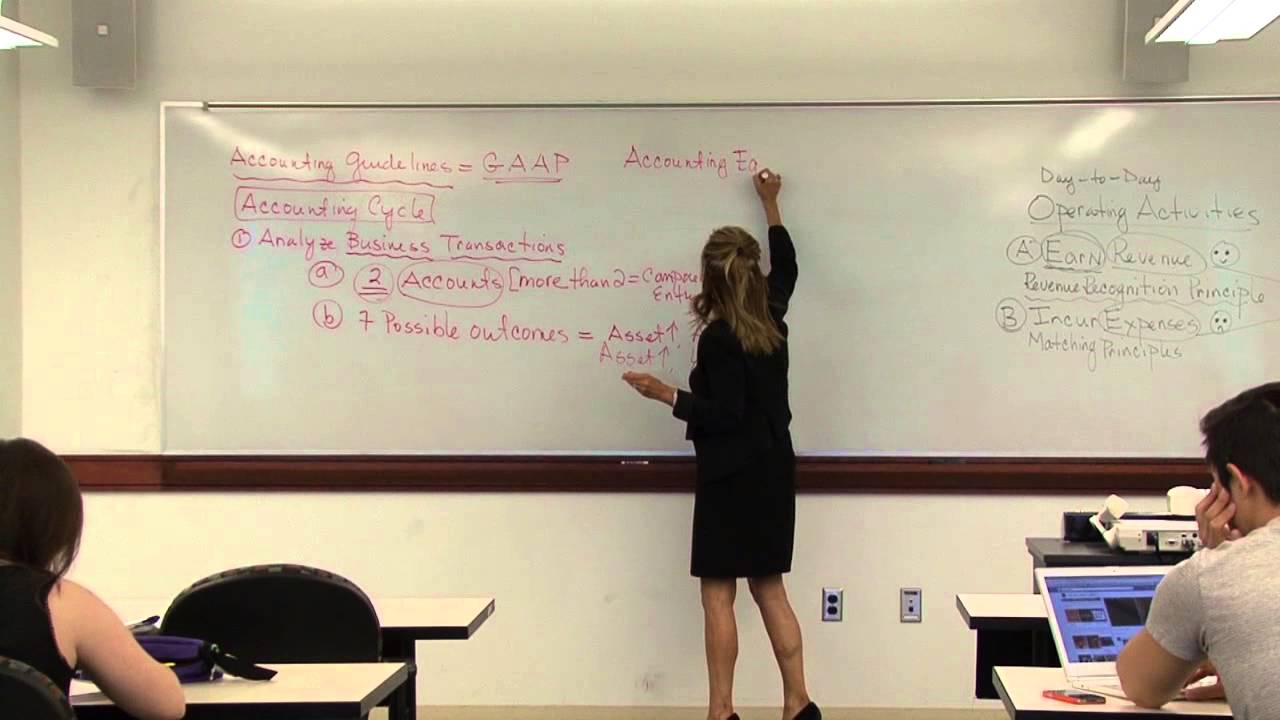 Accounting Guidelines = GAAP
Accounting Cycle
① Analyze Business Transactions
ⓐ 2 Accounts [more than 2 =
ⓑ 7 Possible outcomes = Asset↑,
Asset↑,
Accounting Eq
Day-to-Day
Operating Activities
Ⓐ Earn Revenue
Revenue Recognition Principle
Ⓑ Incur Expenses
Matching Principles